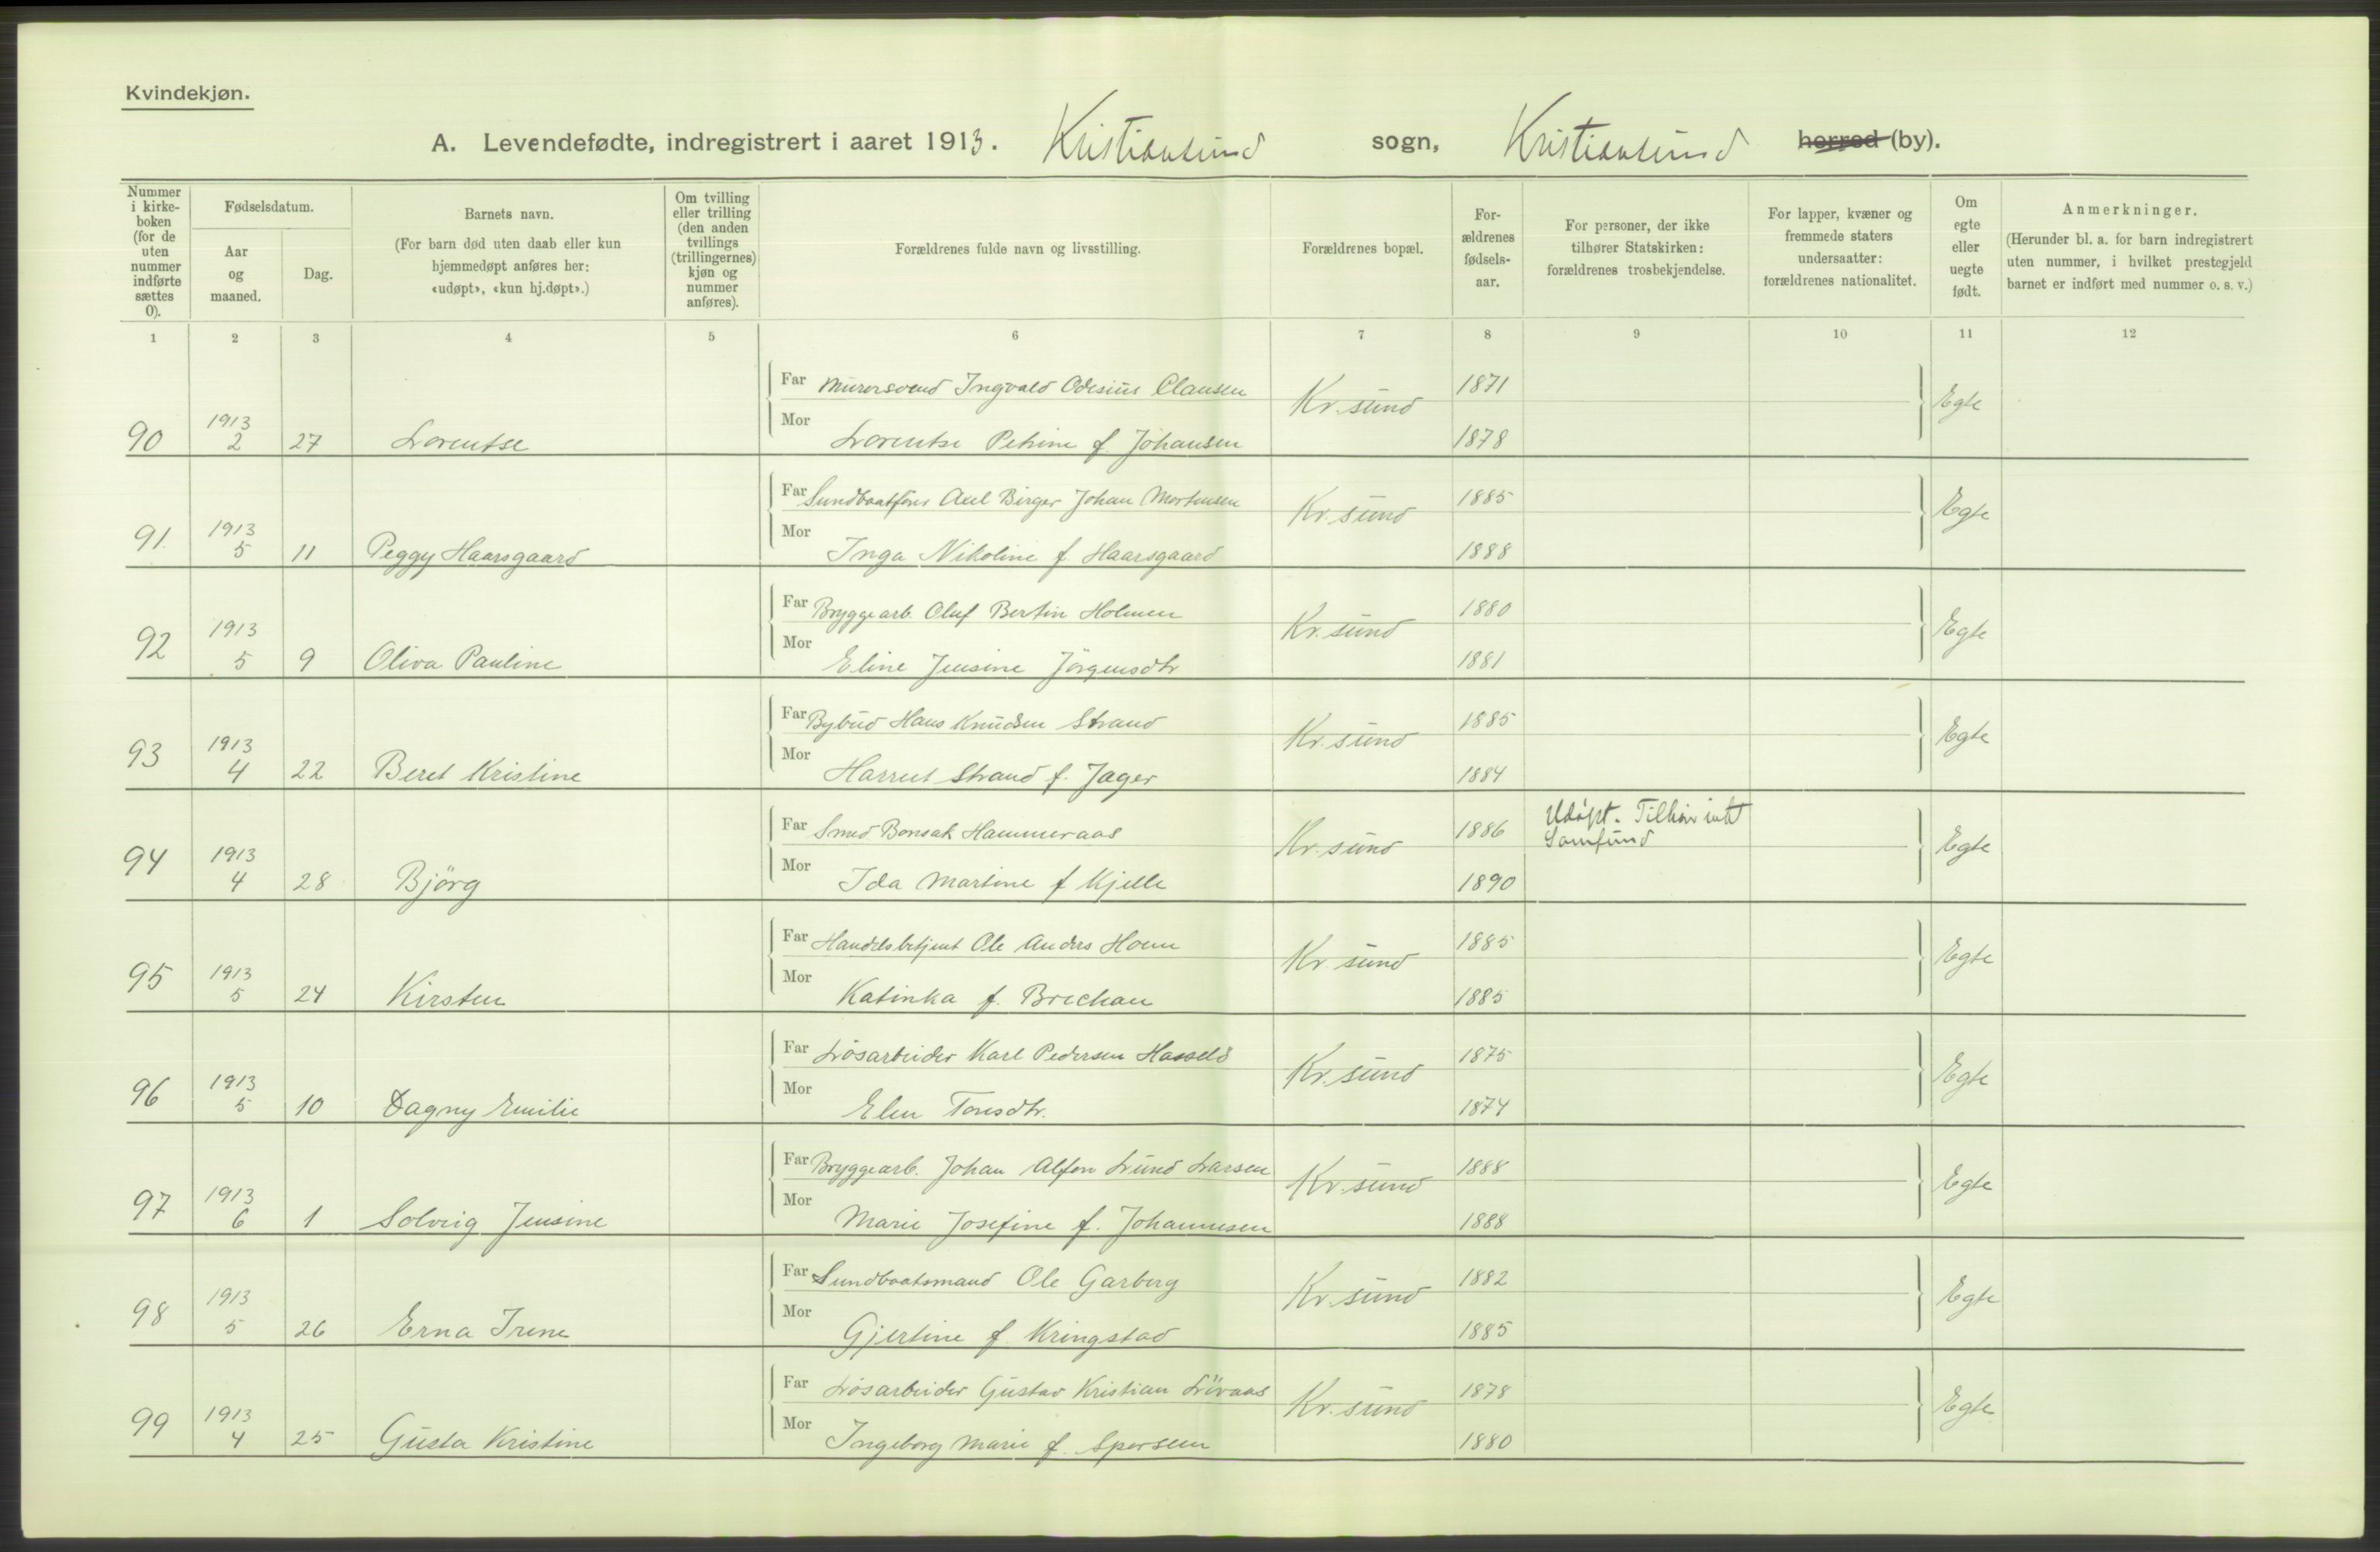 Kvindekjøn.
A. Levendefødte, indregistrert i aaret 1913. Kristiansund sogn, Kristiansund herred (by).
Nummer i kirke-boken (for de uten nummer indførte sættes 0).
Fødselsdatum.
Aar og maaned.
Dag.
Barnets navn.
(For barn død uten daab eller kun hjemmedøpt anføres her: «udøpt», «kun hj.døpt».)
Om tvilling eller trilling (den anden tvillings (trillingernes) kjøn og nummer anføres).
Forældrenes fulde navn og livsstilling.
Forældrenes bopæl.
For-ældrenes fødsels-aar.
For personer, der ikke tilhører Statskirken: forældrenes trosbekjendelse.
For lapper, kvæner og fremmede staters undersaatter: forældrenes nationalitet.
Om egte eller uegte født.
Anmerkninger.
(Herunder bl. a. for barn indregistrert uten nummer, i hvilket prestegjeld barnet er indført med nummer o. s. v.)
1 2 3 4 5 6 7 8 9 10 11 12
Far Murersvend Ingvald Odesius Clausen Kr.sund 1871 Egte
90 1913 2 27 Lorentse Mor Lorentse Petrine f. Johansen 1878
Far Sundbaatfører Axel Birger Johan Mortensen Kr.sund 1885 Egte
91. 1913 5 11 Peggy Haarsgaard Mor Inga Nikoline f. Haarsgaard 1888
Far Bryggearb. Oluf Bertin Holmen Kr.sund 1880 Egte
92 1913 5 9 Oliva Pauline Mor Eline Jensine Jörgensdtr 1881
Far Bybud Hans Knudsen Strand Kr.sund 1885 Egte
93 1913 4 22 Beret Kristine Mor Harriet Strand f. Jager 1884
Far Smed Bonsak Hammeraas Kr.sund 1886 Udøpt. Tilhør intet Samfund Egte
94 1913 4 28 Björg Mor Ida Martine f Kjelle 1890
Far Handelsbetjent Ole Anders Hoem Kr.sund 1885 Egte
95 1913 5 24 Kirsten Mor Katinka f. Brechan 1885
Far Løsarbeider Karl Pedersen Hasselø Kr.sund 1875 Egte
96 1913 5 10 Dagny Emilie Mor Elen Toresdtr. 1874
Far Bryggearb. Johan Alfon Lund Larsen Kr.sund 1888 Egte
97 1913 6 1 Solveig Jensine Mor Marie Josefine f. Johannesen 1888
Far Sundbaatsmand Ole Garberg Kr.sund 1882 Egte
98 1913 5 26 Erna Irene Mor Gjertine f. Kringstad 1885
Far Løsarbeider Gustav Kristian Lövaas Kr.sund 1878 Egte
99 1913 4 25 Gusta Kristine Mor Ingeborg Marie f. 1880